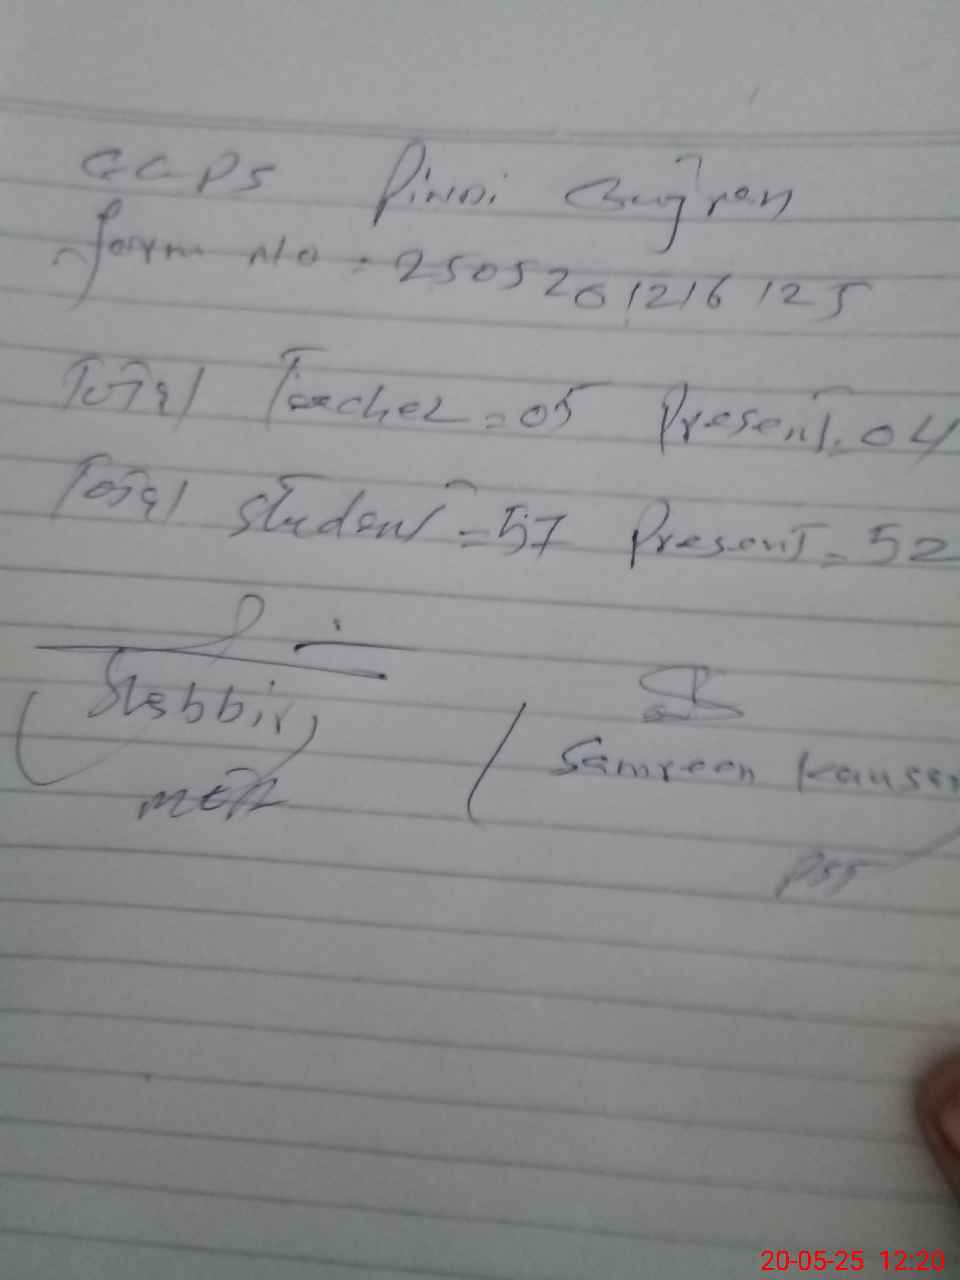 GGPS Pindi Gujran
form No. 2505201216125
Total Teacher = 05 Present. 04
Total student = 57 Present = 52
(Shabbir)
MEA
(Samreen Kausar
PST
20-05-25 12:20